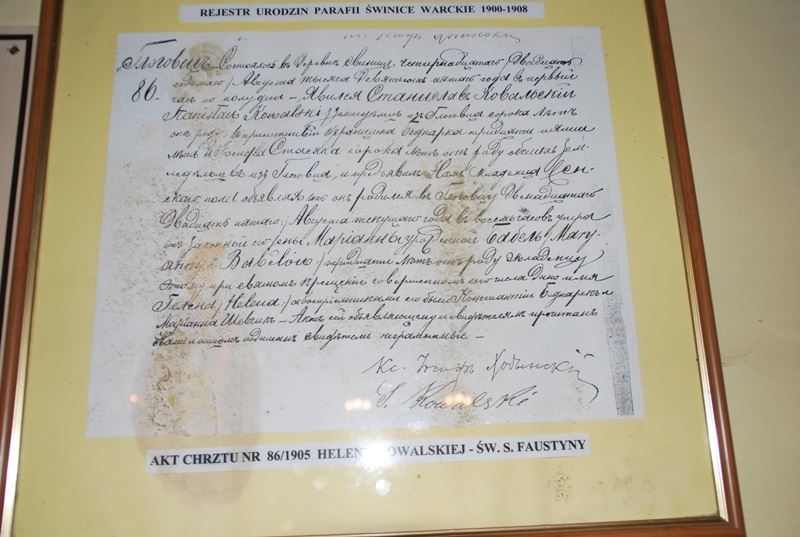 REJESTR URODZIN PARAFII ŚWINICE WARCKIE 1900-1908
Состоялось въ деревнѣ Свинице, четырнадцатаго / двадцать
86. седьмаго / Августа тысяча девятьсотъ пятаго года въ первый
часъ по полудни – Явился Станиславъ Ковальскій
Stanisław Kowalski / изъ Глоговца сорока лѣтъ
отъ роду, въ присутствіи Францишка Беднарка тридцати
лѣтъ и Стасяка сорока лѣтъ отъ роду обоихъ
изъ Глоговца, и предъявилъ Намъ младенца
пола объявляя что онъ родился въ
двадцать пятаго / Августа текущаго года въ восемь часовъ утра
отъ законной его жены Маріанны урожденной Бабель / Mary-
anny Babelów / тридцати лѣтъ отъ роду Младенцу
этому при святомъ крещеніи совершенномъ сего числа дано имя
Гелена / Helena / а воспріемниками его были Константій Беднарекъ и
Маріанна – Актъ сей объявляющему и свидѣтелямъ прочитанъ
Нами и подписанъ свидѣтели неграмотные –
Кс.
S. Kowalski
AKT CHRZTU NR 86/1905 HELENY KOWALSKIEJ - ŚW. S. FAUSTYNY